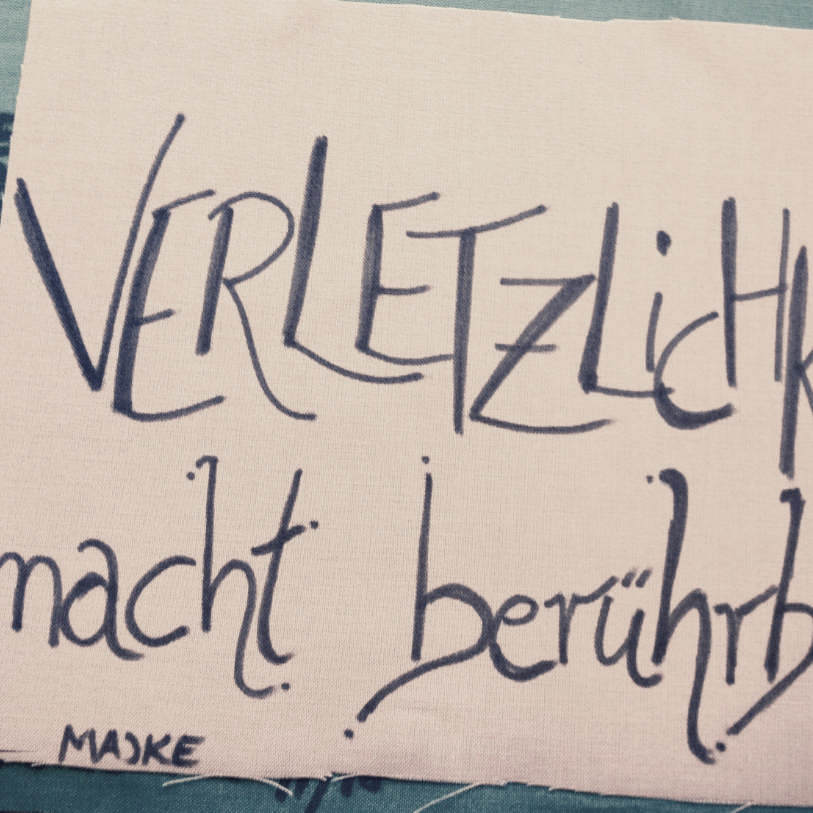 VERLETZLiCHK
macht berührb
MAJKE